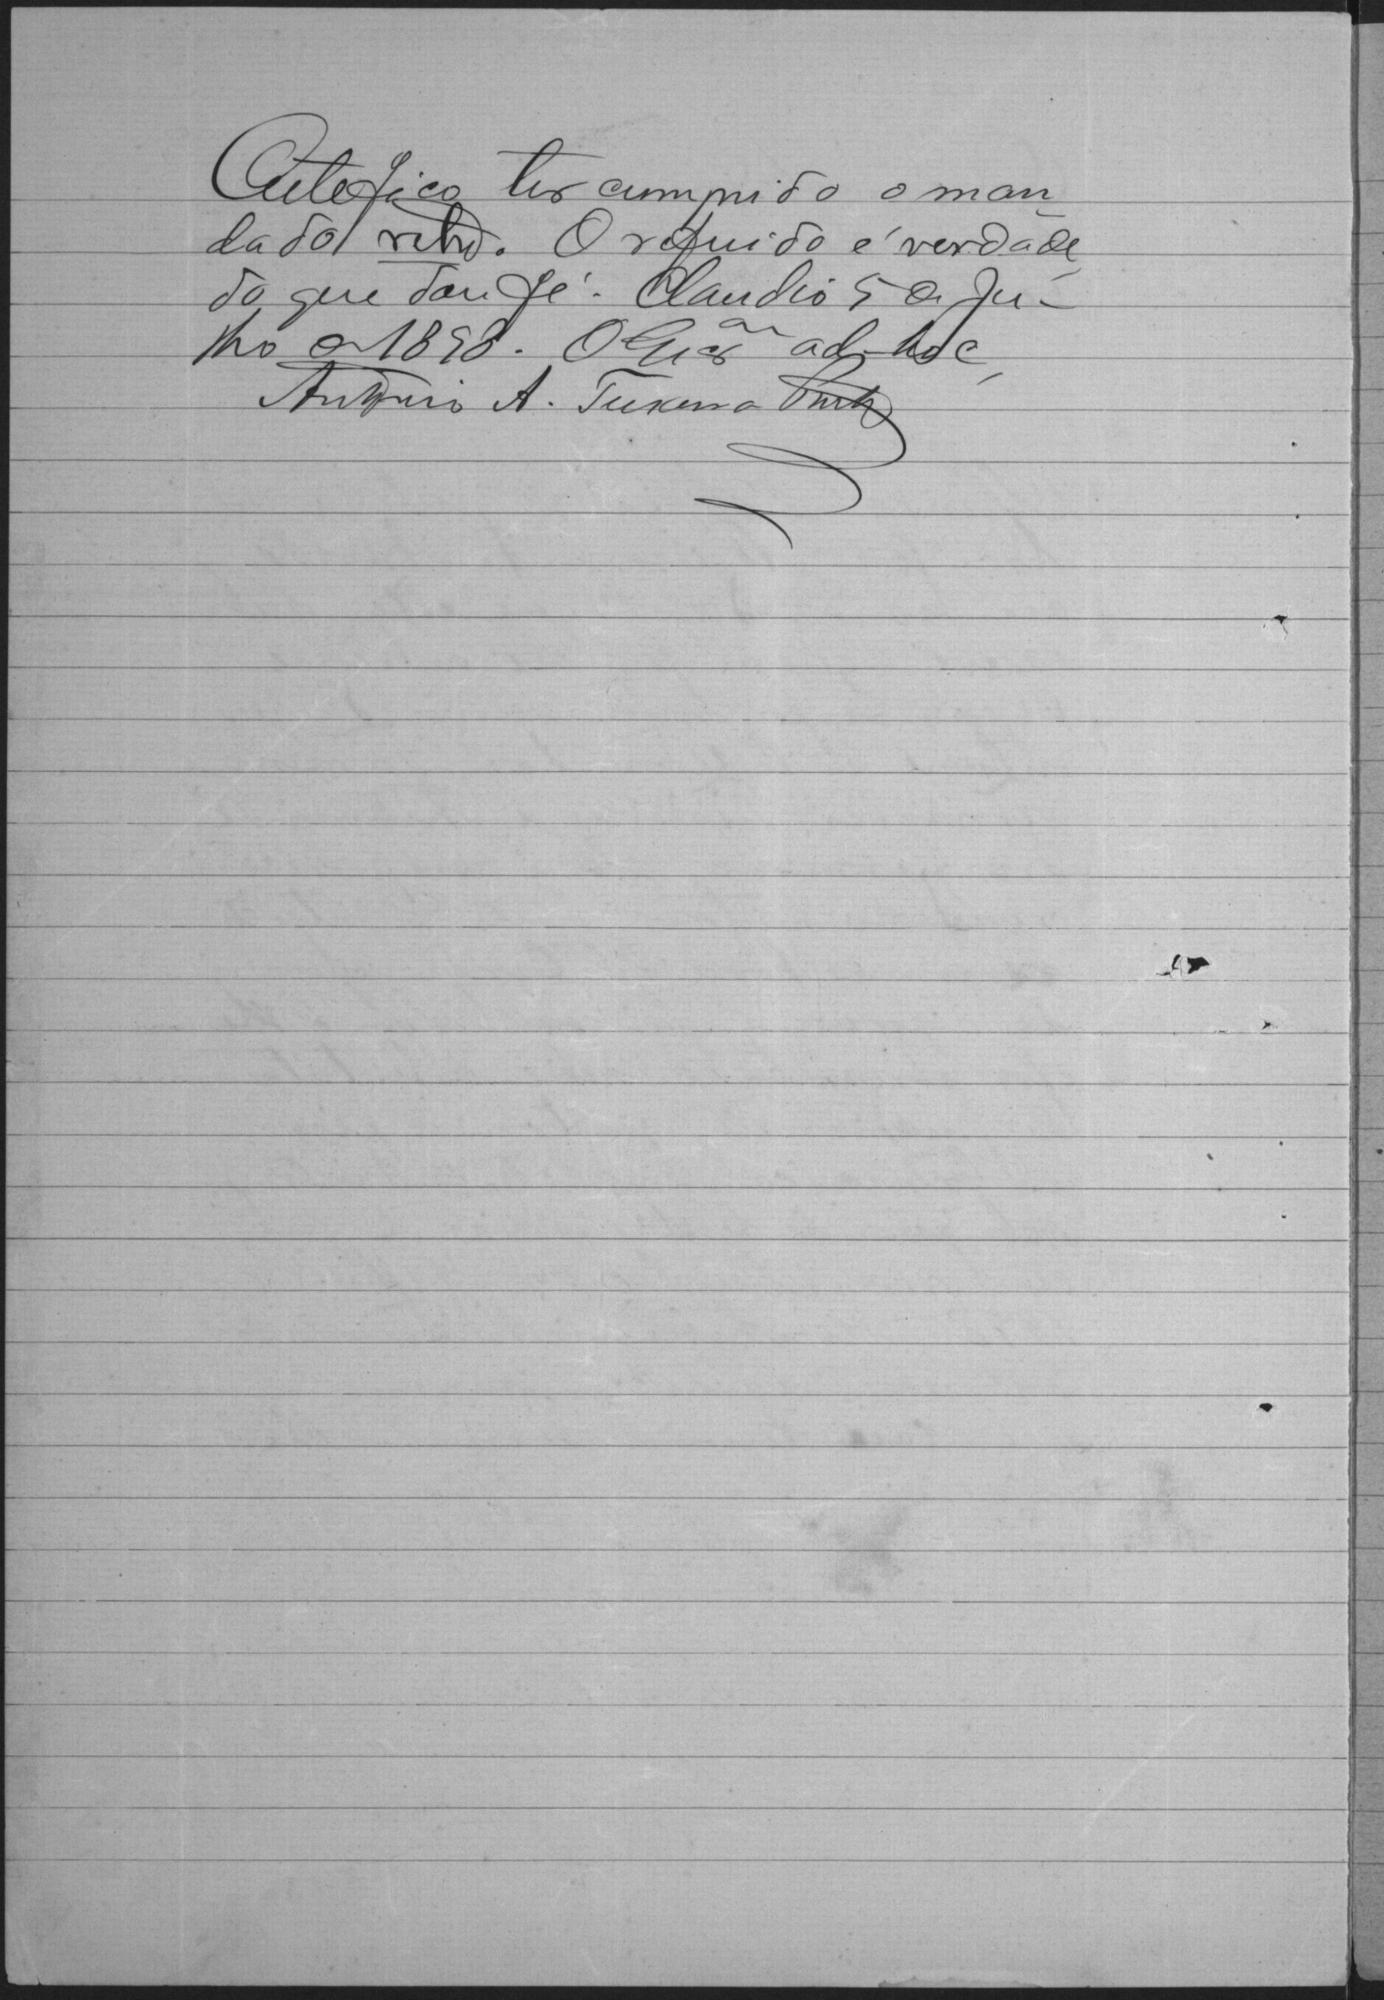 Certefico ter cumprido o man
dado retro. O referido é verdade
do que dou fé. Claudio 5 de Ju-
lho de 1898. O Escr.ão ad-hoc,
Antonio A. Teixeira